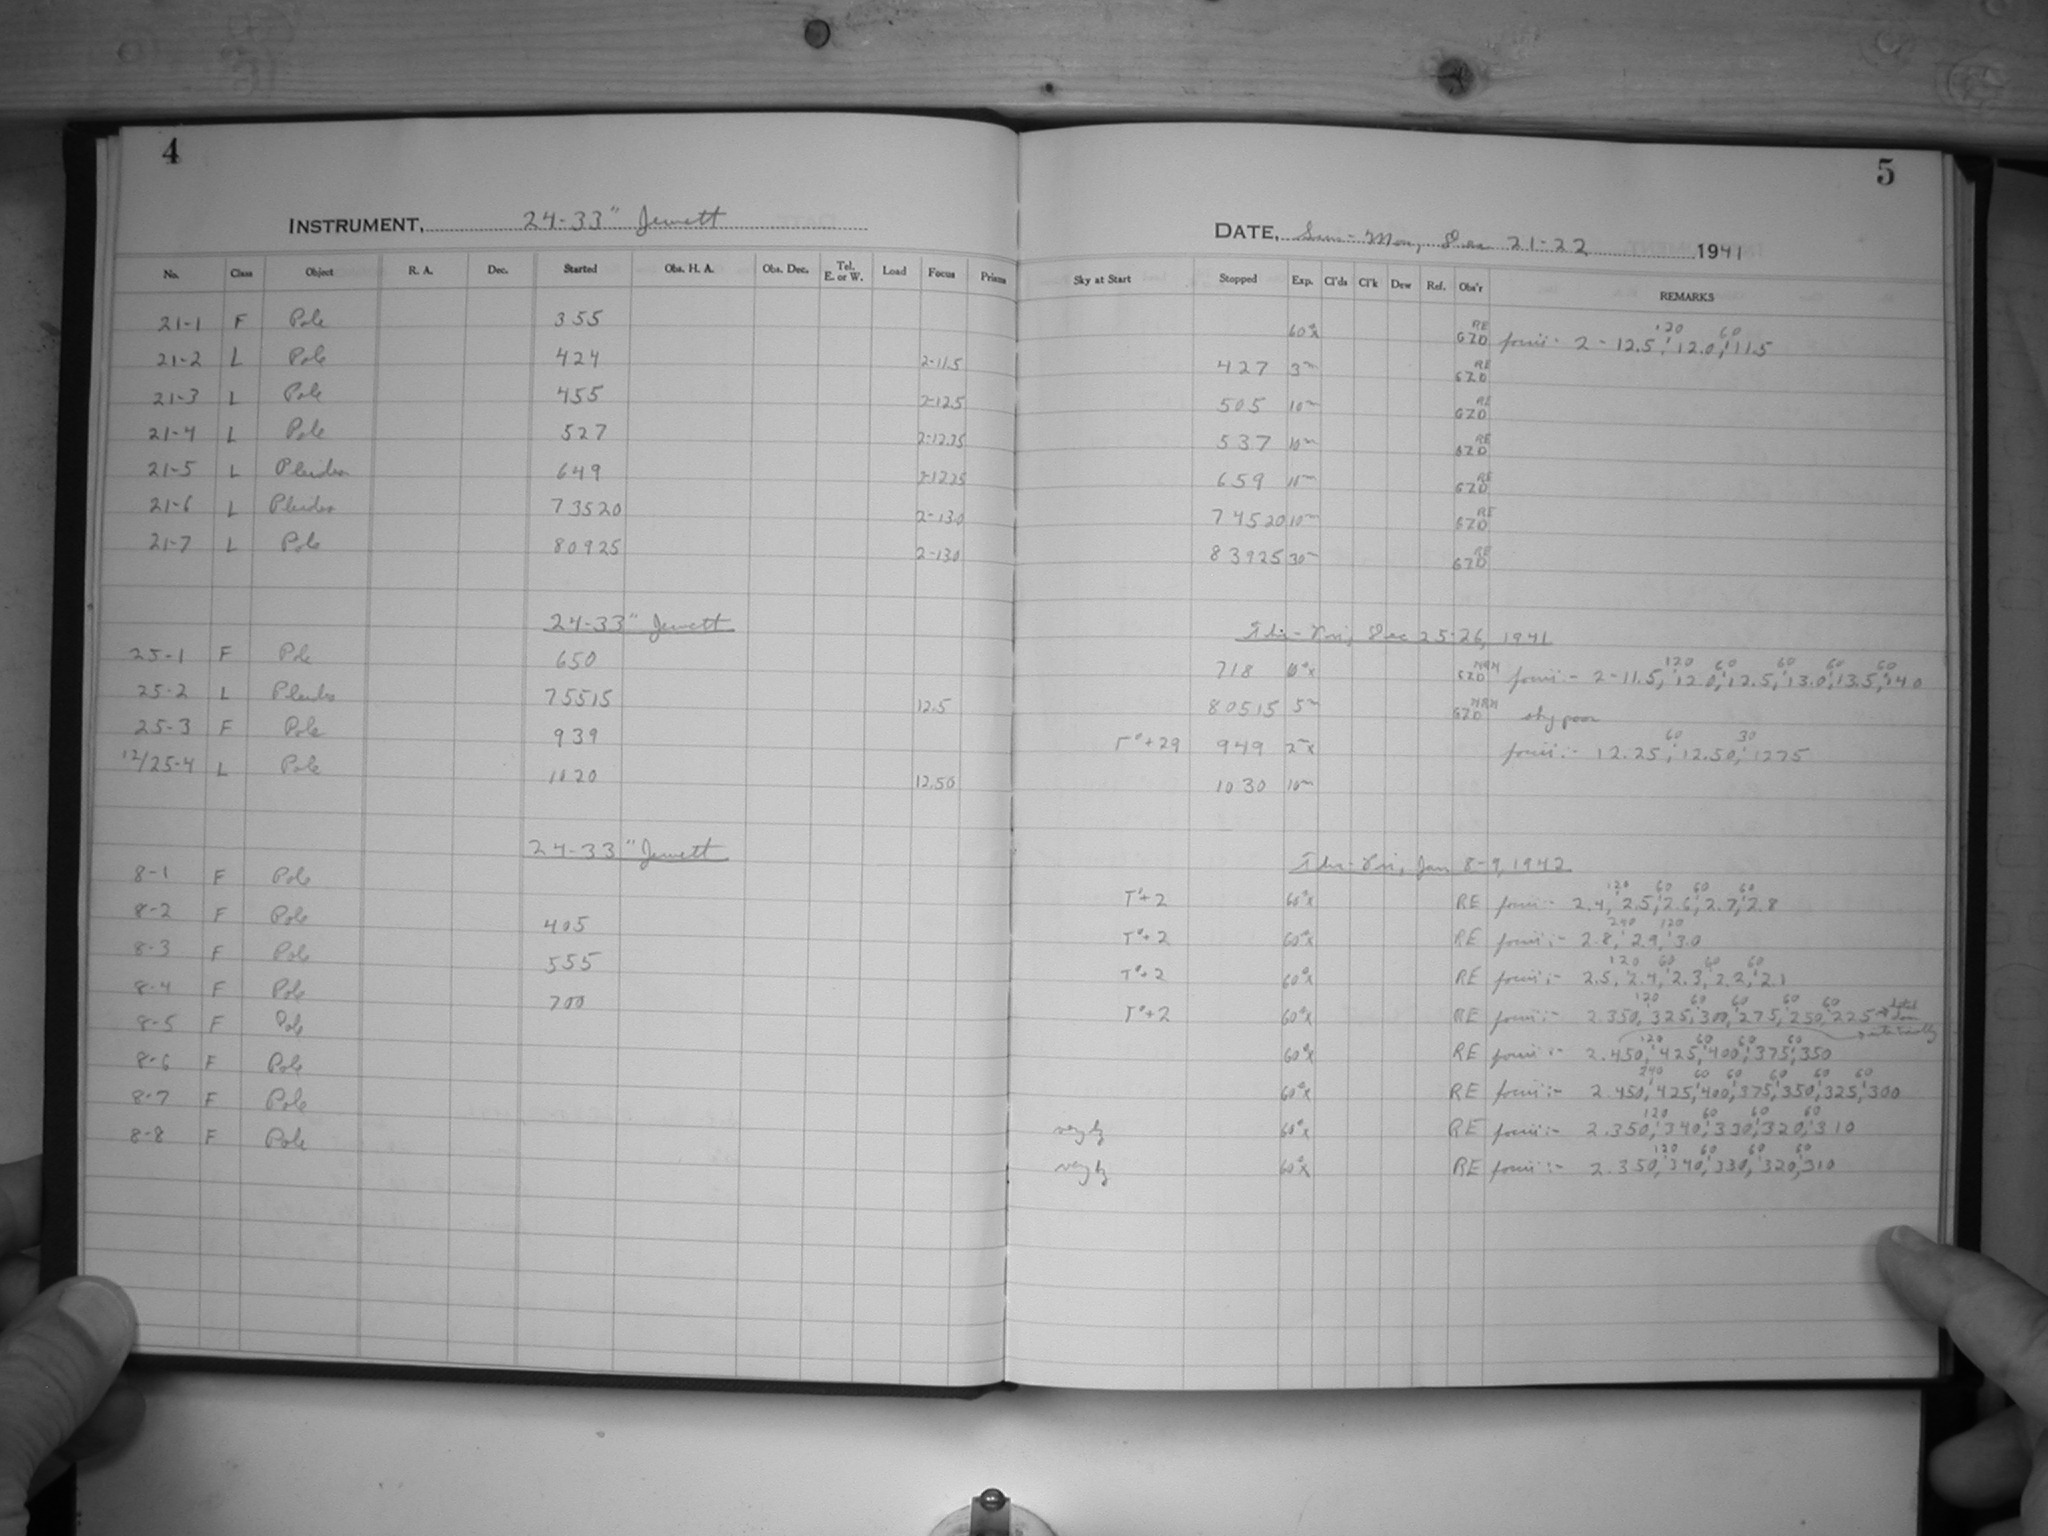 4
INSTRUMENT, 24-33" Jewett
No. Class Object R. A. Dec. Started Obs. H. A. Obs. Dec. Tel. E. or W. Load Focus Prisms
21-1 F Pole 355
21-2 L Pole 424 2-11.5
21-3 L Pole 455 2-12.5
21-4 L Pole 527 2-12.25
21-5 L 649 2-12.25
21-6 L 73520 2-130
21-7 L Pole 80925 2-130
24-33" Jewett
25-1 F Pole 650
25-2 L 75515 12.5
25-3 F Pole 939
12/25-4 L Pole 1020 12.50
24-33" Jewett
8-1 F Pole
8-2 F Pole 405
8-3 F Pole 555
8-4 F Pole 700
8-5 F Pole
8-6 F Pole
8-7 F Pole
8-8 F Pole
5
DATE, Sun-Mon, Dec 21-22 1941
Sky at Start Stopped Exp. Cl'ds Cl'k Dew Ref. Obs'r REMARKS
60s x RE GZD focus:- 2-12.5, 120 12.0, 60 11.5
427 3m RE GZD
505 10m RE GZD
537 10m RE GZD
659 10m RE GZD
74520 10m RE GZD
83925 30m RE GZD
Thu-Fri, Dec 25-26, 1941
718 GZD focus:- 2-11.5, 120 12.0, 60 12.5, 60 13.0, 60 13.5, 60 14.0
80515 5m GZD sky poor
T°+29 949 focus:- 12.25, 60 12.50, 30 1275
1030 10m
Thu-Fri, Jan 8-9, 1942
T°+2 60s x RE focus:- 2.4, 120 2.5, 60 2.6, 60 2.7, 60 2.8
T°+2 60s x RE focus:- 2.8, 240 2.9, 120 3.0
T°+2 60s x RE focus:- 2.5, 120 2.4, 60 2.3, 60 2.2, 60 2.1
T°+2 60s x RE focus:- 2.350, 120 325, 60 300, 60 275, 60 250, 60 225
60s x RE focus:- 2.450, 120 425, 60 400, 60 375, 60 350
60s x RE focus:- 2.450, 240 425, 60 400, 60 375, 60 350, 60 325, 60 300
60s x RE focus:- 2.350, 120 340, 60 330, 60 320, 60 310
60s x RE focus:- 2.350, 120 340, 60 330, 60 320, 60 310